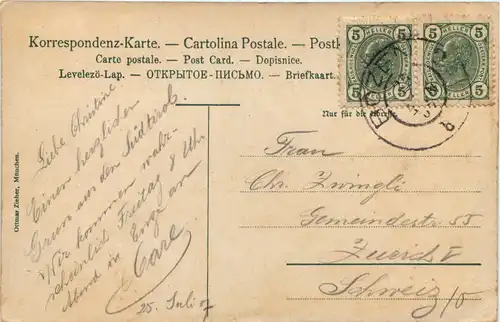 Korrespondenz-Karte. — Cartolina Postale. — Postk
Carte postale. — Post Card. — Dopisnice.
Levelező-Lap. — ОТКРЫТОЕ-ПИСЬМО. — Briefkaart.
5 HELLER 5
5 HELLER 5
BOZEN
Nur für die Adresse
Ottmar Zieher, München.
Liebe Christine
Einen herzlichen
Gruss aus dem Südtirol.
Wir kommen wahr-
scheinlich Freitag 8 Uhr
Abend in Enge an
Carl
25. Juli 07
Frau
Chr. Zwingli
Gemeindestr 55
Zürich V
Schweiz